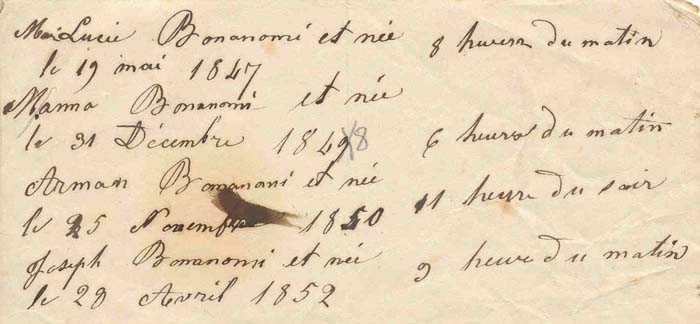 Marie Lucie Bonanomi et née 8 heures du matin
le 19 mai 1847
Manna Bonanomi et née
le 31 Décembre 1849/8 6 heures du matin
Arman Bomanomi et née
le 25 Novembre 1850 11 heure du soir
Joseph Bonanomi et née
le 28 Avril 1852 9 heure du matin